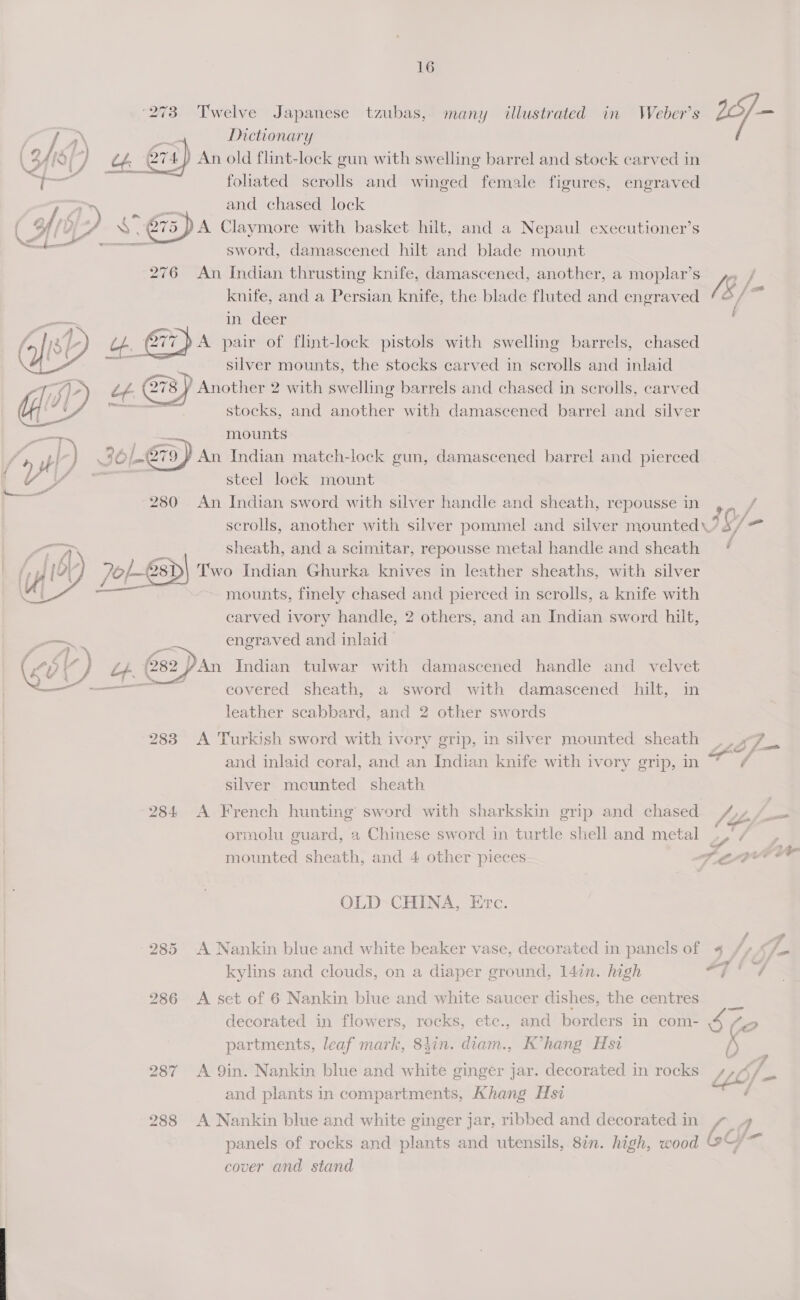 16
273 Twelve Japanese tzubas, many illustrated in Weber's
Dictionary
274 An old flint-lock gun with swelling barrel and stock carved in
foliated scrolls and winged female figures, engraved
and chased lock
275 A Claymore with basket hilt, and a Nepaul executioner's
sword, damascened hilt and blade mount
276 An Indian thrusting knife, damascened, another, a moplar's
knife, and a Persian knife, the blade fluted and engraved
in deer
277 A pair of flint-lock pistols with swelling barrels, chased
silver mounts, the stocks carved in scrolls and inlaid
278 Another 2 with swelling barrels and chased in scrolls, carved
stocks, and another with damascened barrel and silver
mounts
30/- 279 An Indian match-lock gun, damascened barrel and pierced
steel lock mount
280 An Indian sword with silver handle and sheath, repousse in
scrolls, another with silver pommel and silver mounted
sheath, and a scimitar, repousse metal handle and sheath
70/- 281 Two Indian Ghurka knives in leather sheaths, with silver
mounts, finely chased and pierced in scrolls, a knife with
carved ivory handle, 2 others, and an Indian sword hilt,
engraved and inlaid
282 An Indian tulwar with damascened handle and velvet
covered sheath, a sword with damascened hilt, in
leather scabbard, and 2 other swords
283 A Turkish sword with ivory grip, in silver mounted sheath
and inlaid coral, and an Indian knife with ivory grip, in
silver mounted sheath
284 A French hunting sword with sharkskin grip and chased
ormolu guard, a Chinese sword in turtle shell and metal
mounted sheath, and 4 other pieces
OLD CHINA, Etc.
285 A Nankin blue and white beaker vase, decorated in panels of
kylins and clouds, on a diaper ground, 14in. high
286 A set of 6 Nankin blue and white saucer dishes, the centres
decorated in flowers, rocks, etc., and borders in com-
partments, leaf mark, 8½in. diam., K'hang Hsi
287 A 9in. Nankin blue and white ginger jar. decorated in rocks
and plants in compartments, Khang Hsi
288 A Nankin blue and white ginger jar, ribbed and decorated in
panels of rocks and plants and utensils, 8in. high, wood
cover and stand